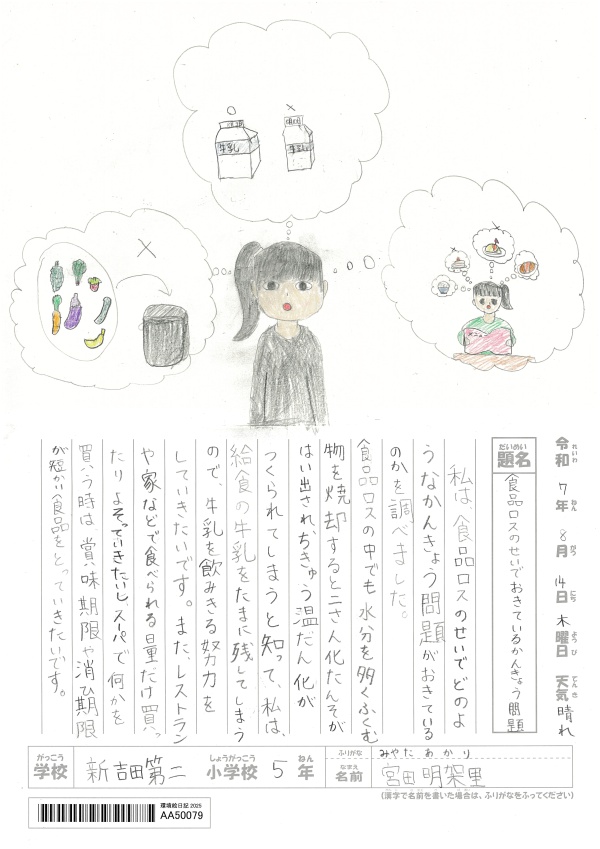 牛乳
牛乳
令和 7年 8月 14日 木曜日 天気 晴れ
れいわ ねん がつ にち ようび てんき
だいめい
題名
食品ロスのせいでおきているかんきょう問題
私は、食品ロスのせいでどのよ
うなかんきょう問題がおきている
のかを調べました。
食品ロスの中でも水分を多くふくむ
物を焼却すると二さん化たんそが
はい出されちきゅう温だん化が
つくられてしまうと知って、私は、
給食の牛乳をたまに残してしまう
ので、牛乳を飲みきる努力を
していきたいです。また、レストラン
や家などで食べられる量だけ買っ
たりよそっていきたいし、スーパで何かを
買う時は、賞味期限や消ひ期限
が短かい食品をとっていきたいです。
がっこう
学校
新吉田第二
しょうがっこう
小学校
5
ねん
年
ふりがな
みやた あかり
なまえ
名前
宮田 明架里
(漢字で名前を書いた場合は、ふりがなをふってください)
環境絵日記 2025
AA50079